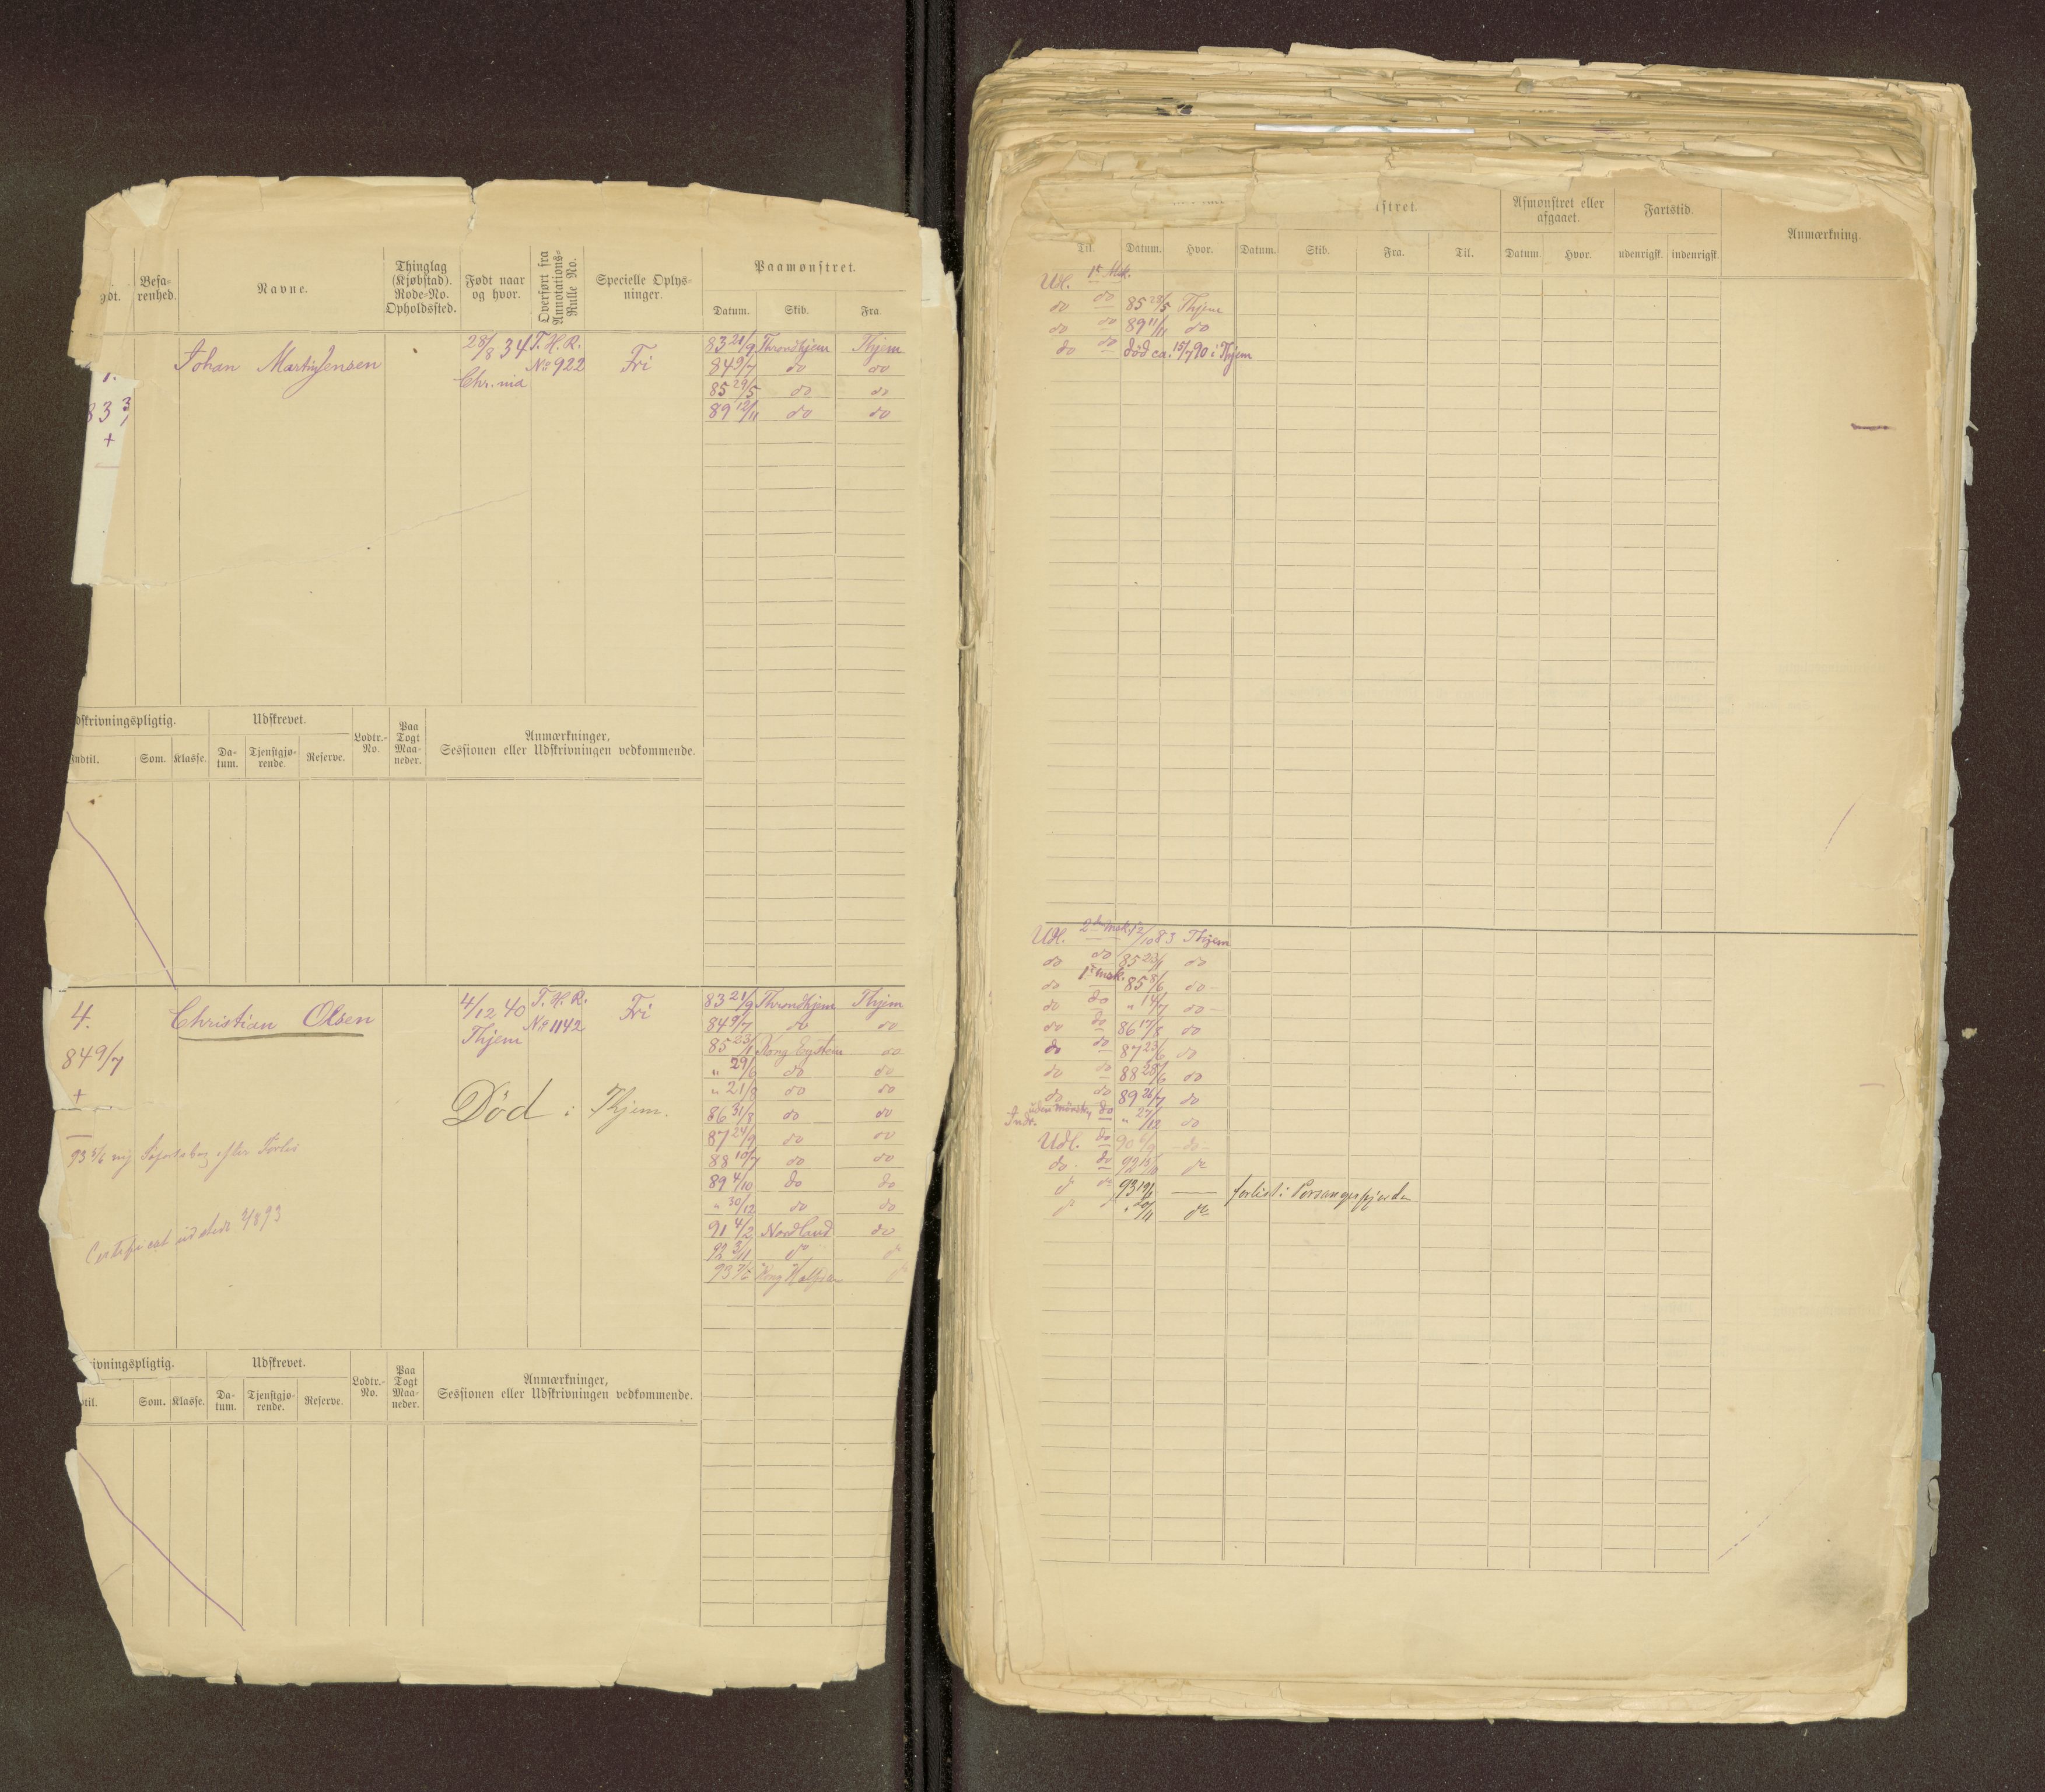 gdt.
Befa-
renhed.
Navne.
Thinglag
(Kjøbstad).
Rode-No.
Opholdssted.
Født naar
og hvor.
Overført fra
Annotations-
Rulle No.
Specielle Oplys-
ninger.
Paamønstret.
Datum.
Skib.
Fra.
1.
83 3/
+
Johan Martin Jensen
28/8 34
Chr.nia
T. H. R.
No 922
Fri
83 21/9 Throndhjem Thjem
84 9/7 do do
85 29/5 do do
89 12/11 do do
dskrivningspligtig.
Udskrevet.
Indtil.
Som.
Klasse.
Da-
tum.
Tjenstgjø-
rende.
Reserve.
Lodtr.-
No.
Paa
Togt
Maa-
neder.
Anmærkninger,
Sessionen eller Udskrivningen vedkommende.
4.
84 9/7
+
Christian Olsen
4/12 40
Thjem
T. H. R.
No 1142
Fri
Død i Thjem.
Certificat udstedt
83 21/9 Throndhjem Thjem
84 9/7 do do
85 23/1 Kong Eystein do
" 29/6 do do
" 21/8 do do
86 31/8 do do
87 24/9 do do
88 10/7 do do
89 4/10 do do
" 30/12 do do
91 4/2 Nordlund do
92 3/11 do do
93 7/5 Kong Halfdan do
ivningspligtig.
Udskrevet.
til.
Som.
Klasse.
Da-
tum.
Tjenstgjø-
rende.
Reserve.
Lodtr.-
No.
Paa
Togt
Maa-
neder.
Anmærkninger,
Sessionen eller Udskrivningen vedkommende.
istret.
Afmønstret eller
afgaaet.
Fartstid.
Anmærkning.
Til.
Datum.
Hvor.
Datum.
Skib.
Fra.
Til.
Datum.
Hvor.
udenrigsk.
indenrigsk.
Udl. 1ste Msk.
do do 85 23/5 Thjem
do do 89 11/11 do
do do død ca. 15/7 90 i Thjem
Udl. 2den msk. 12/10 83 Thjem
do do 85 23/1 do
do 1ste msk. 85 8/6 do
do do " 14/7 do
do do 86 17/8 do
do do 87 23/6 do
do do 88 28/6 do
do do 89 26/7 do
Indr. do " 27/12 do
Udl. do 90 6/9 do
do do 92 15/10 do
do do 93 19/1 — forlist i Porsangerfjorden
do